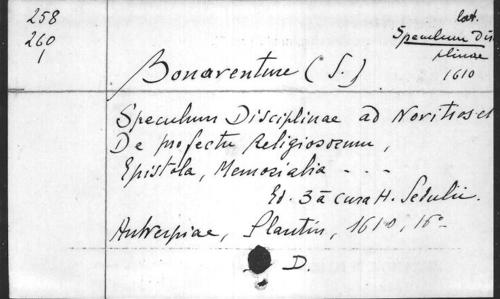 258
260
1
lat.
Speculum Dis
plinae
1610
Bonaventure (S.)
Speculum Disciplinae ad Novitios et
De profectu Religiosorum,
Epistola, Memorialia - - -
Ed. 3ā cura H. Sedulii.
Antverpiae, Plantin, 1610, 16º
D.